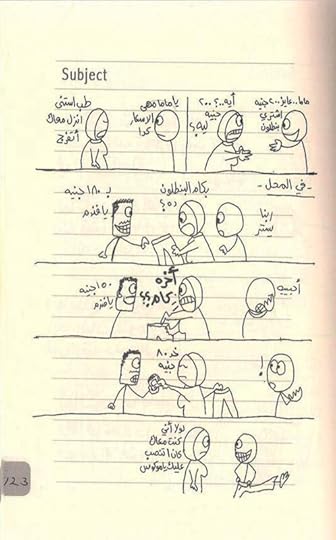 Subject
ماما.. عايز ٢٠٠ جنيه
اشتري
بنطلون
أيه..؟ ٢٠٠
جنيه
ليه؟
يا ماما مهي
الاسعار
كدا
طب استنى
انزل معاك
أتفرج
- في المحل -
ربنا
يستر
بكام البنطلون
ده؟
بـ ١٨٠ جنيه
يا فندم
أحييه
أخره
كام؟؟
١٥٠ جنيه
يا فندم
!
خد ٨٠
جنيه
لولا أني
كنت معاك
كان اتنصب
عليك يا موكوس
123